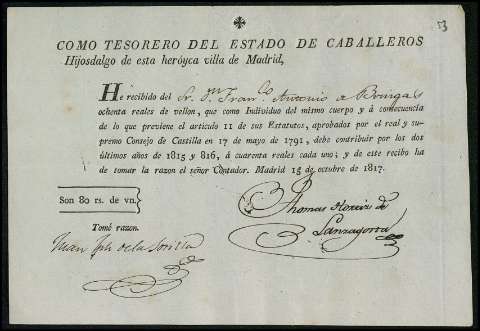 53
COMO TESORERO DEL ESTADO DE CABALLEROS
Hijosdalgo de esta heróyca villa de Madrid,
He recibido del Sr. Dn. Franco. Antonio a Bringas
ochenta reales de vellon, que como Individuo del mismo cuerpo y á consecuencia
de lo que previene el artículo 11 de sus Estatutos, aprobados por el real y su-
premo Consejo de Castilla en 17 de mayo de 1791, debe contribuir por los dos
últimos años de 1815 y 816, á cuarenta reales cada uno; y de este recibo ha
de tomar la razon el señor Contador. Madrid 15 de octubre de 1817.
Son 80 rs. de vn.
Thomas de
Lanzagorta
Tomé razon.
Juan de la